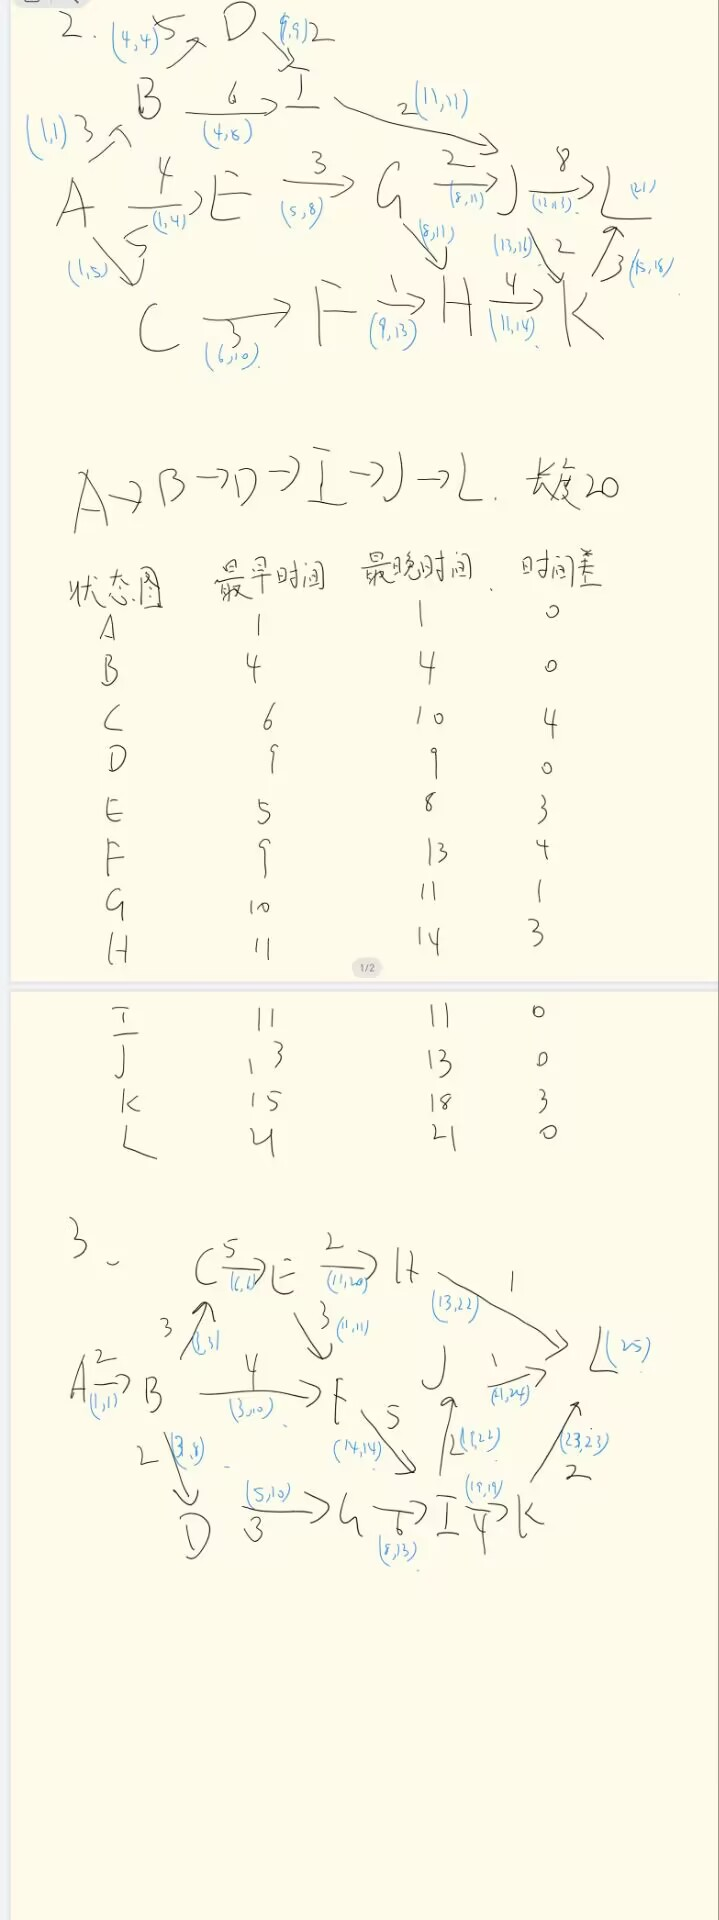 2. (4,4) 5 D (9,9) 2
B 6 (4,5) I 2 (11,11)
(1,1) 3
A 4 (1,4) E 3 (5,8) G 2 (8,11) J 8 L (21)
(1,5) 5 (8,11) (13,16) 2 3 (15,18)
C 3 (6,10) F 1 (9,13) H 4 (11,14) K
A→B→D→I→J→L. 长度20
状态图 最早时间 最晚时间 时间差
A 1 1 0
B 4 4 0
C 6 10 4
D 9 9 0
E 5 8 3
F 9 13 4
G 10 11 1
H 11 14 3
1/2
I 11 11 0
J 13 13 0
K 15 18 3
L 21 21 0
3.
C 5 E 2 (11,20) H 1
3 3 (11,11) (13,22)
A 2 (1,1) B 4 (3,10) F J 1 (21,24) L (25)
2 (3,8) 5 (14,14) 2 (23,23) 2
D (5,10) 3 G 6 (8,13) I (19,19) 4 K